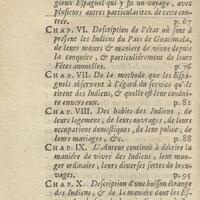 gieux Espagnol qui y fit un voyage, avec
plusieurs autres particularitez de cette con-
trée. p. 67
CHAP. VI. Description de l'état où sont à
présent les Indiens du Païs de Guatimala,
de leurs mœurs & maniére de vivre depuis
la conquête, & particuliérement de leurs
Fêtes annuelles. p. 76
CHAP. VII. De la methode que les Espa-
gnols observent à l'égard du service qu'ils
tirent des Indiens, & quelle est leur condui-
te envers eux. p. 81
CHAP. VIII. Des habits des Indiens, de
leurs logemens, de leurs ouvrages, de leurs
occupations domestiques, de leur police, de
leurs mariages, &c. p. 88
CHAP. IX. L'Auteur continuë à décrire la
maniére de vivre des Indiens, leur man-
ger ordinaire, leurs diverses sortes de breu-
vages. p. 95
CHAP. X. Description d'une boisson étrange
des Indiens, & de la maniére dont les Es-